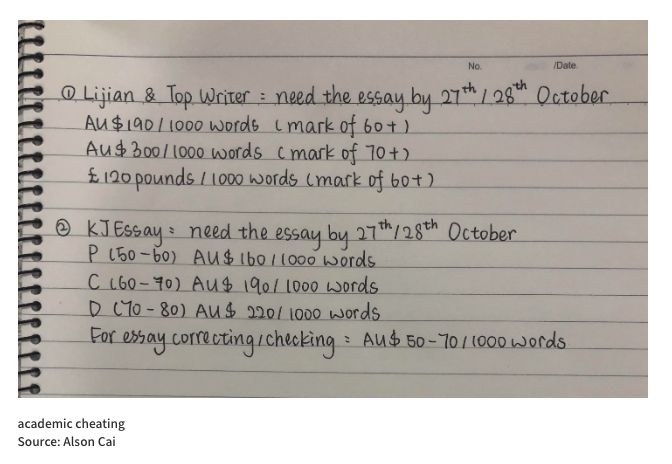 No. /Date.
① Lijian & Top Writer : need the essay by 27th / 28th October
AU$190 / 1000 words (mark of 60+)
AU$300/1000 words (mark of 70+)
£120 pounds / 1000 words (mark of 60+)
② KJEssay : need the essay by 27th/28th October
P (50-60) AU$ 160 / 1000 words
C (60-70) AU$ 190/ 1000 words
D (70-80) AU$ 220/ 1000 words
For essay correcting/checking : AU$ 50-70/1000 words
academic cheating
Source: Alson Cai